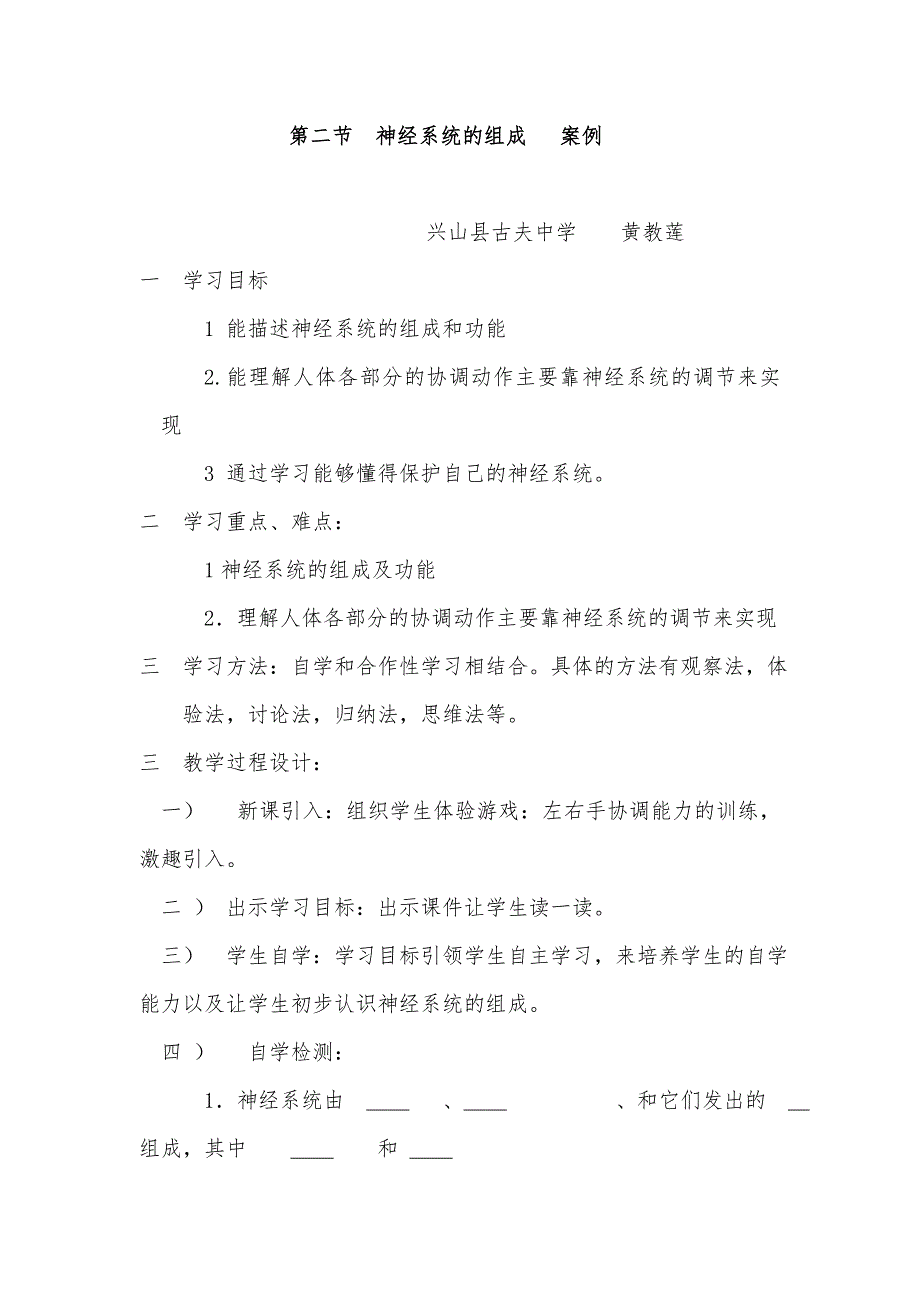 第二节 神经系统的组成 案例
兴山县古夫中学 黄教莲
一 学习目标
1 能描述神经系统的组成和功能
2.能理解人体各部分的协调动作主要靠神经系统的调节来实
现
3 通过学习能够懂得保护自己的神经系统。
二 学习重点、难点：
1神经系统的组成及功能
2．理解人体各部分的协调动作主要靠神经系统的调节来实现
三 学习方法：自学和合作性学习相结合。具体的方法有观察法，体
验法，讨论法，归纳法，思维法等。
三 教学过程设计：
一） 新课引入：组织学生体验游戏：左右手协调能力的训练，
激趣引入。
二 ） 出示学习目标：出示课件让学生读一读。
三） 学生自学：学习目标引领学生自主学习，来培养学生的自学
能力以及让学生初步认识神经系统的组成。
四 ） 自学检测：
1．神经系统由 ____ 、____ 、和它们发出的 __
组成，其中 ____ 和 ____